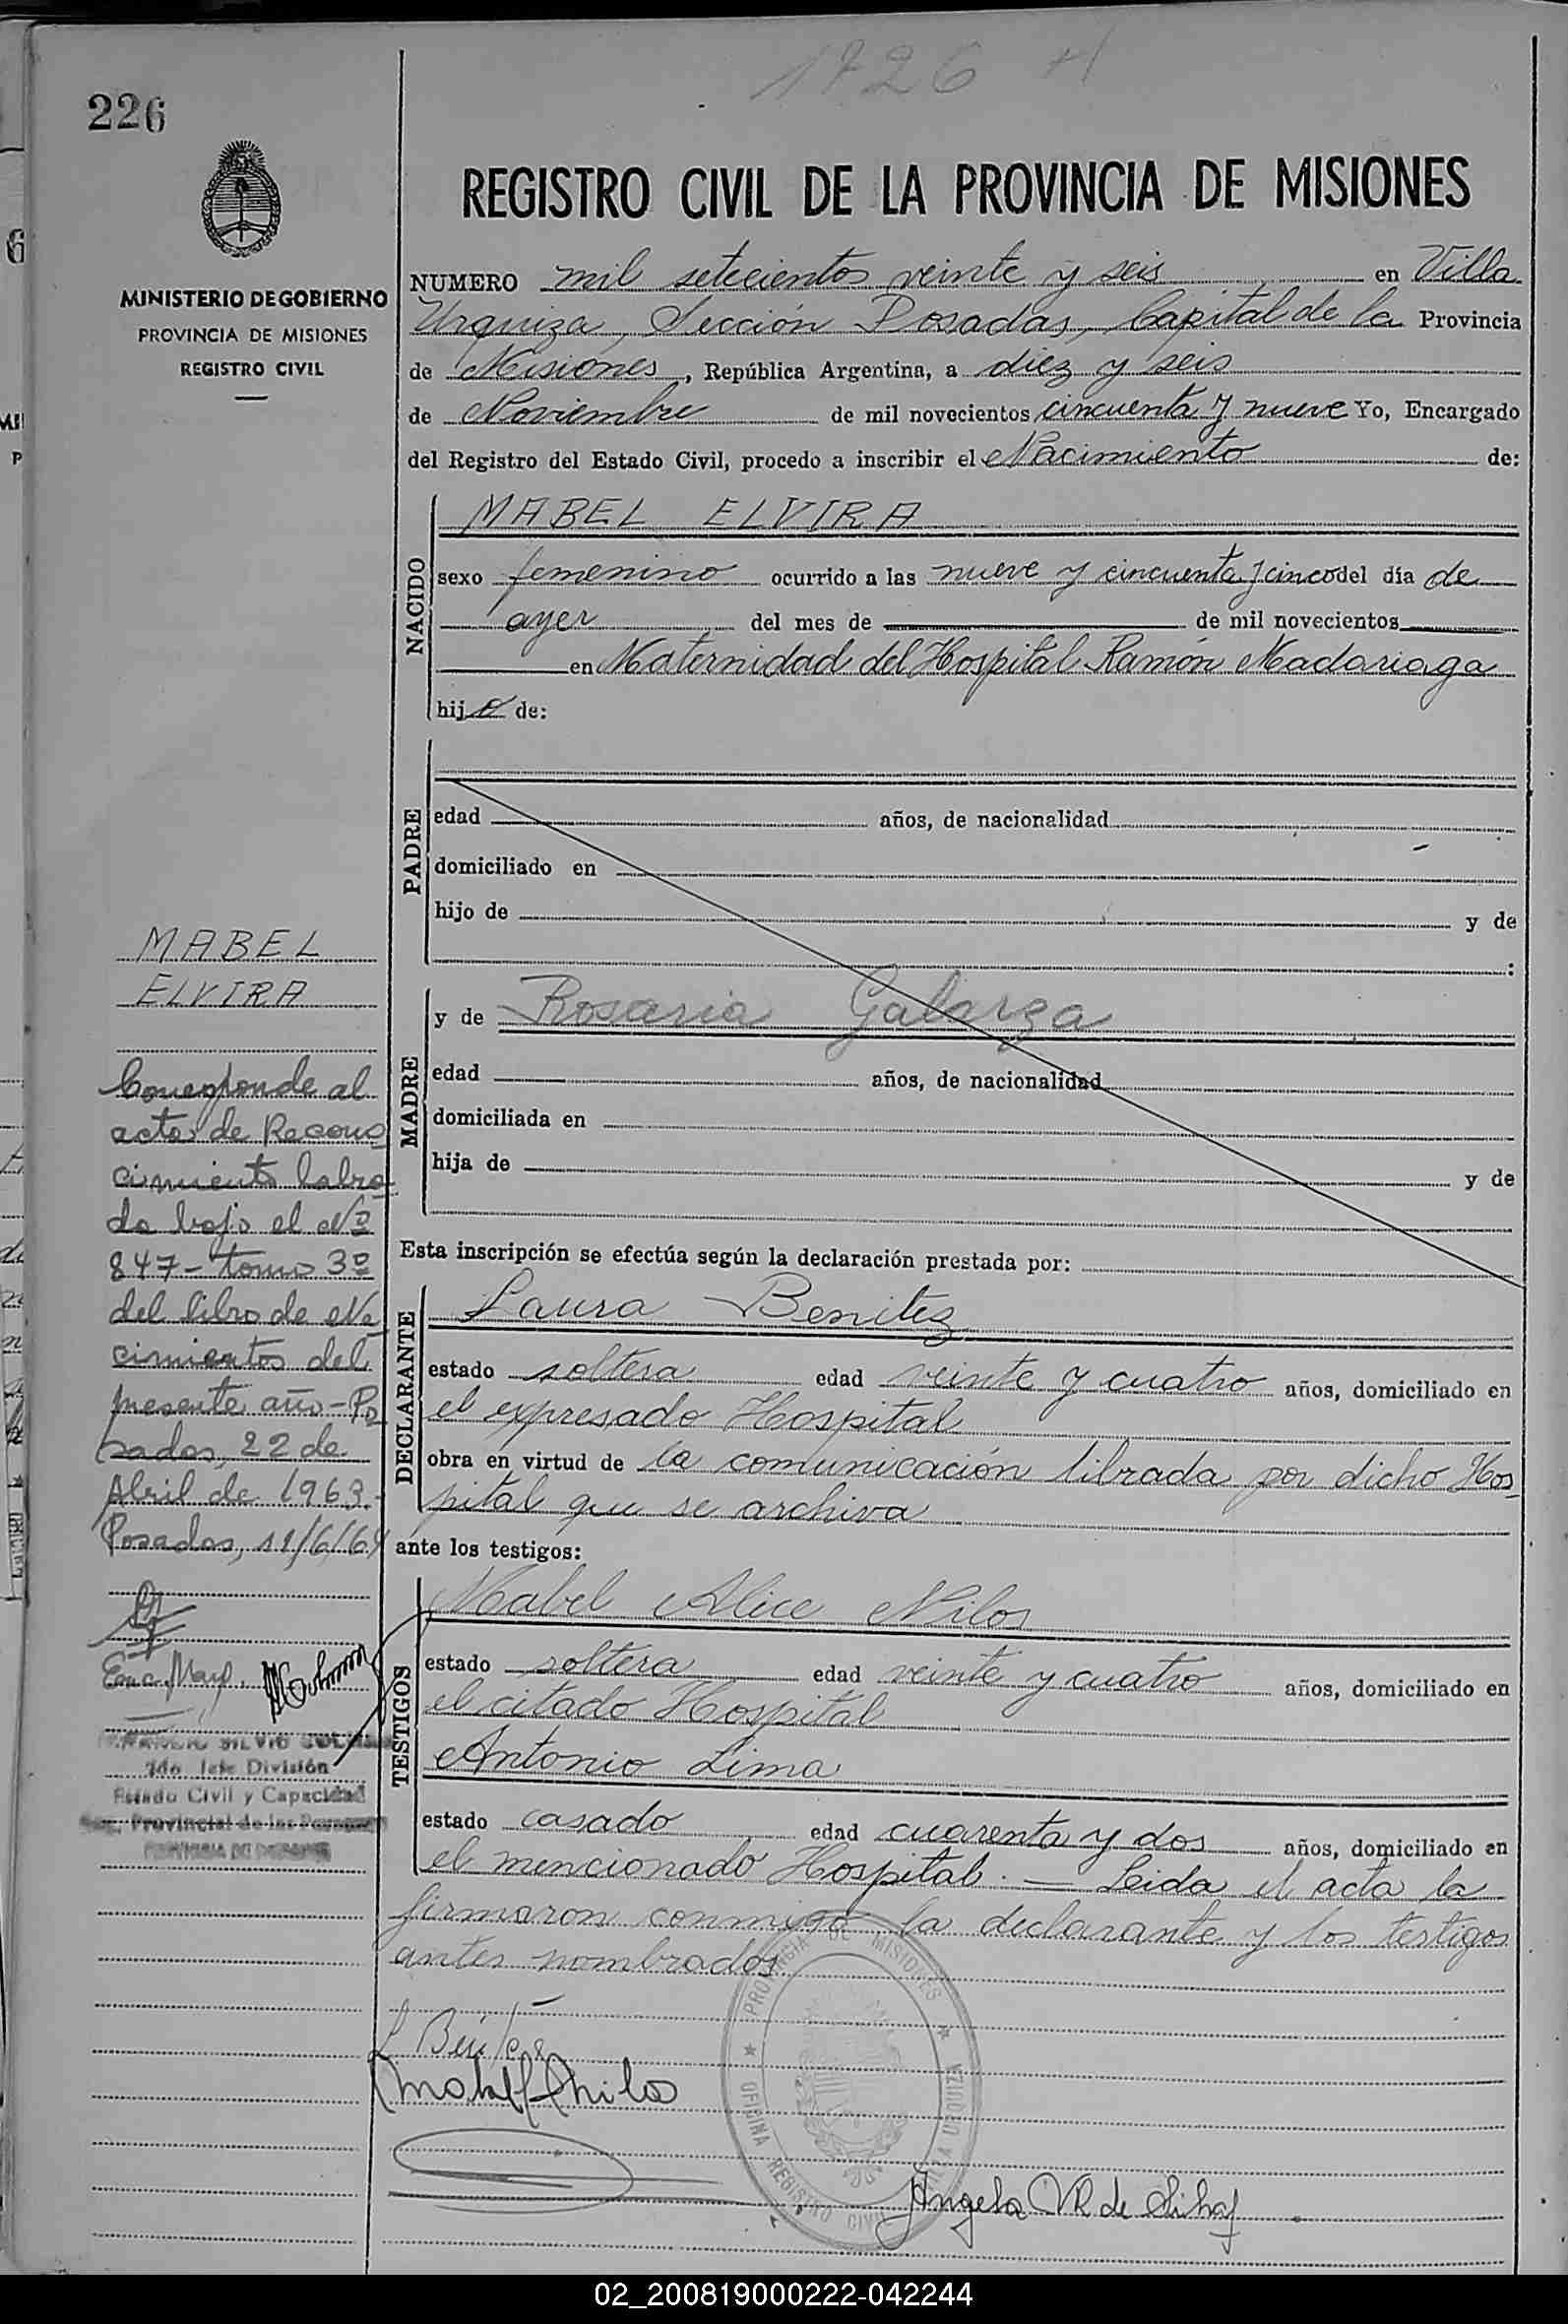 1726
226
REGISTRO CIVIL DE LA PROVINCIA DE MISIONES
MINISTERIO DE GOBIERNO
PROVINCIA DE MISIONES
REGISTRO CIVIL
NUMERO mil setecientos veinte y seis en Villa
Urquiza, Sección Posadas, Capital de la Provincia
de Misiones, República Argentina, a diez y seis
de Noviembre de mil novecientos cincuenta y nueve Yo, Encargado
del Registro del Estado Civil, procedo a inscribir el Nacimiento de:
NACIDO
MABEL ELVIRA
sexo femenino ocurrido a las nueve y cincuenta y cinco del día de
ayer del mes de de mil novecientos
en Maternidad del Hospital Ramón Madariaga
hij de:
PADRE
edad años, de nacionalidad
domiciliado en
hijo de y de
:
MADRE
y de Rosaria Galarza
edad años, de nacionalidad
domiciliada en
hija de y de
Esta inscripción se efectúa según la declaración prestada por:
DECLARANTE
Laura Benitez
estado soltera edad veinte y cuatro años, domiciliado en
el expresado Hospital
obra en virtud de la comunicación librada por dicho Hos
pital que se archiva
ante los testigos:
TESTIGOS
Mabel Alice Nilos
estado soltera edad veinte y cuatro años, domiciliado en
el citado Hospital
Antonio Lima
estado casado edad cuarenta y dos años, domiciliado en
el mencionado Hospital. — Leida el acta la
firmaron conmigo la declarante y los testigos
antes nombrados
MABEL
ELVIRA
Corresponde al
acta de Recono
cimiento labra
da bajo el Nº
847 - tomo 3º
del libro de Na
cimientos del
presente año - Po
sadas, 22 de
Abril de 1963.-
Posadas, 11/6/64
Enc. Mayl.
SILVIO
2do. Jefe División
Estado Civil y Capacidad
Provincial de las Personas
L Benitez
PROVINCIA DE MISIONES
OFICINA REGISTRO CIVIL
VILLA URQUIZA
Angela VR de
02_200819000222-042244